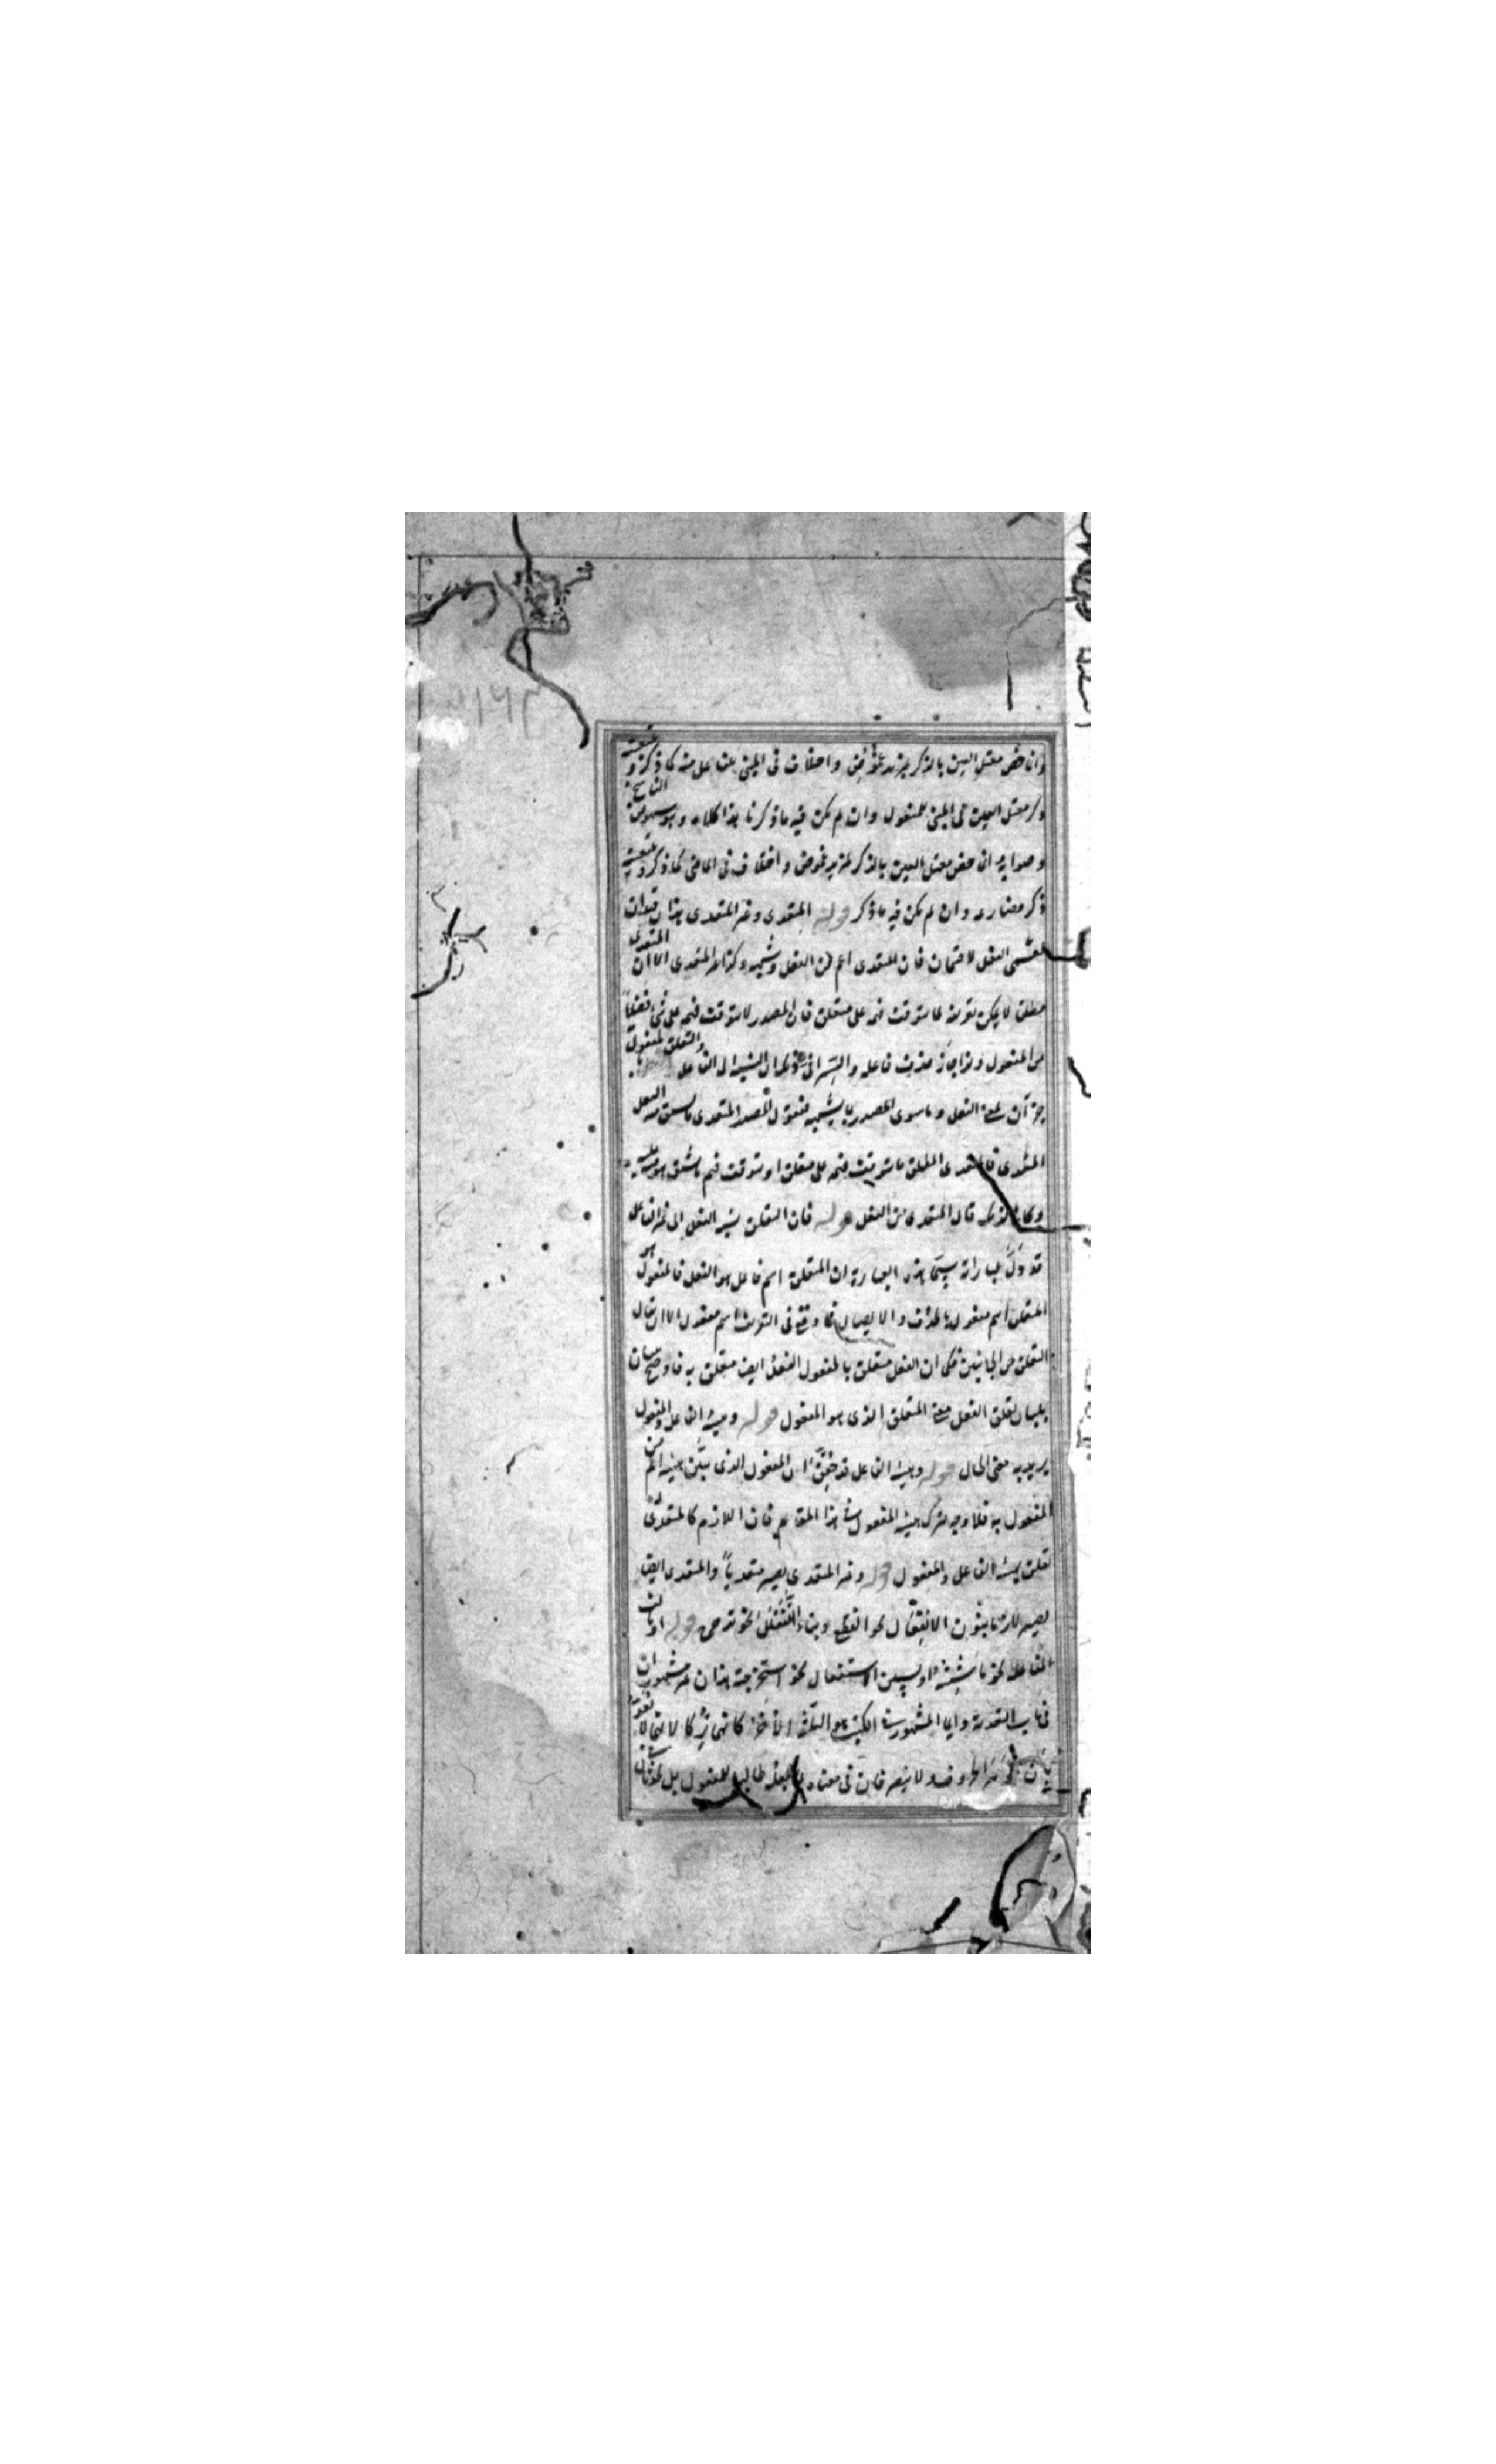 وانما خص معتل العين بالذكر لمزيد غموض واختلاف في المبني للفاعل منه كما ذكر وتبعيته
ذكر معتل العين في المبني للمفعول وان لم يكن فيه ما ذكرنا هذا كلامه وهو سهو من الناسخ
وصوابه انما خص معتل العين بالذكر لمزيد غموض واختلاف في الماضي كما ذكر وتبعيته
ذكر مضارعه وان لم يكن فيه ما ذكر قوله المتعدي وغير المتعدي هذان قيدان
الفعل لا قسمان فان المتعدي اعم من الفعل وشبهه وكذا غير المتعدي الا ان المتعدي
مطلقا لا يمكن تعريفه بما يتوقف فهمه على متعلق فان المصدر لا يتوقف فهمه على شيء فضلا
من المفعول ولذا جاز حذف فاعله والسر ان النسبة الى الفاعل والتعلق بالمفعول
جزآن لمعنى الفعل وما سوى المصدر مما يشبهه فنقول المصدر المتعدي ما يشتق منه الفعل
المتعدي فالمتعدي المطلق ما يتوقف فهمه على متعلق او يتوقف فهم ما يشتق منه عليه
قال المتعدي من الفعل قوله فان التعلق نسبة الفعل الى غير الفاعل
قد دل عباراته سيما هذه العبارة ان المتعلق اسم فاعل هو الفعل فالمفعول هو
المتعلق اسم مفعول بالحذف والايصال فما وقع في التعريف اسم مفعول الا ان يقال
التعلق من الجانبين فكما ان الفعل متعلق بالمفعول المفعول ايضا متعلق به فاوضح بيان
تعلق الفعل معنى المتعلق الذي هو المفعول قوله وهيئة الفاعل والمفعول
يريد به معنى الحال قوله وهيئة الفاعل قد حقق ان المفعول الذي يبين هيئته اعم من
المفعول به فلا وجه لترك هيئة المفعول في هذا المقام فان اللازم كالمتعدي له
تعلق بهيئة الفاعل والمفعول قوله وغير المتعدي يصير متعديا والمتعدي ايضا
يصير لازما بنون الانفعال نحو انقطع وبتاء التفعلل نحو تدحرج قوله او بالف
المفاعلة نحو ماشيته او بسين الاستفعال نحو استخرجته هذان غير مشهوران
في باب التعدية وانما المشهور في الكتب هو الثلثة الاخر
الحروف ولا يغير فان في معناه طالبا للمفعول بل